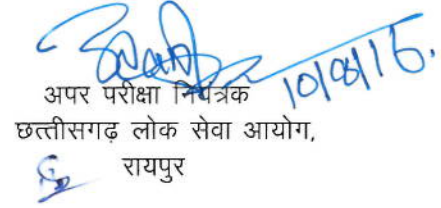 10/8/16.
अपर परीक्षा नियंत्रक
छत्तीसगढ़ लोक सेवा आयोग,
रायपुर